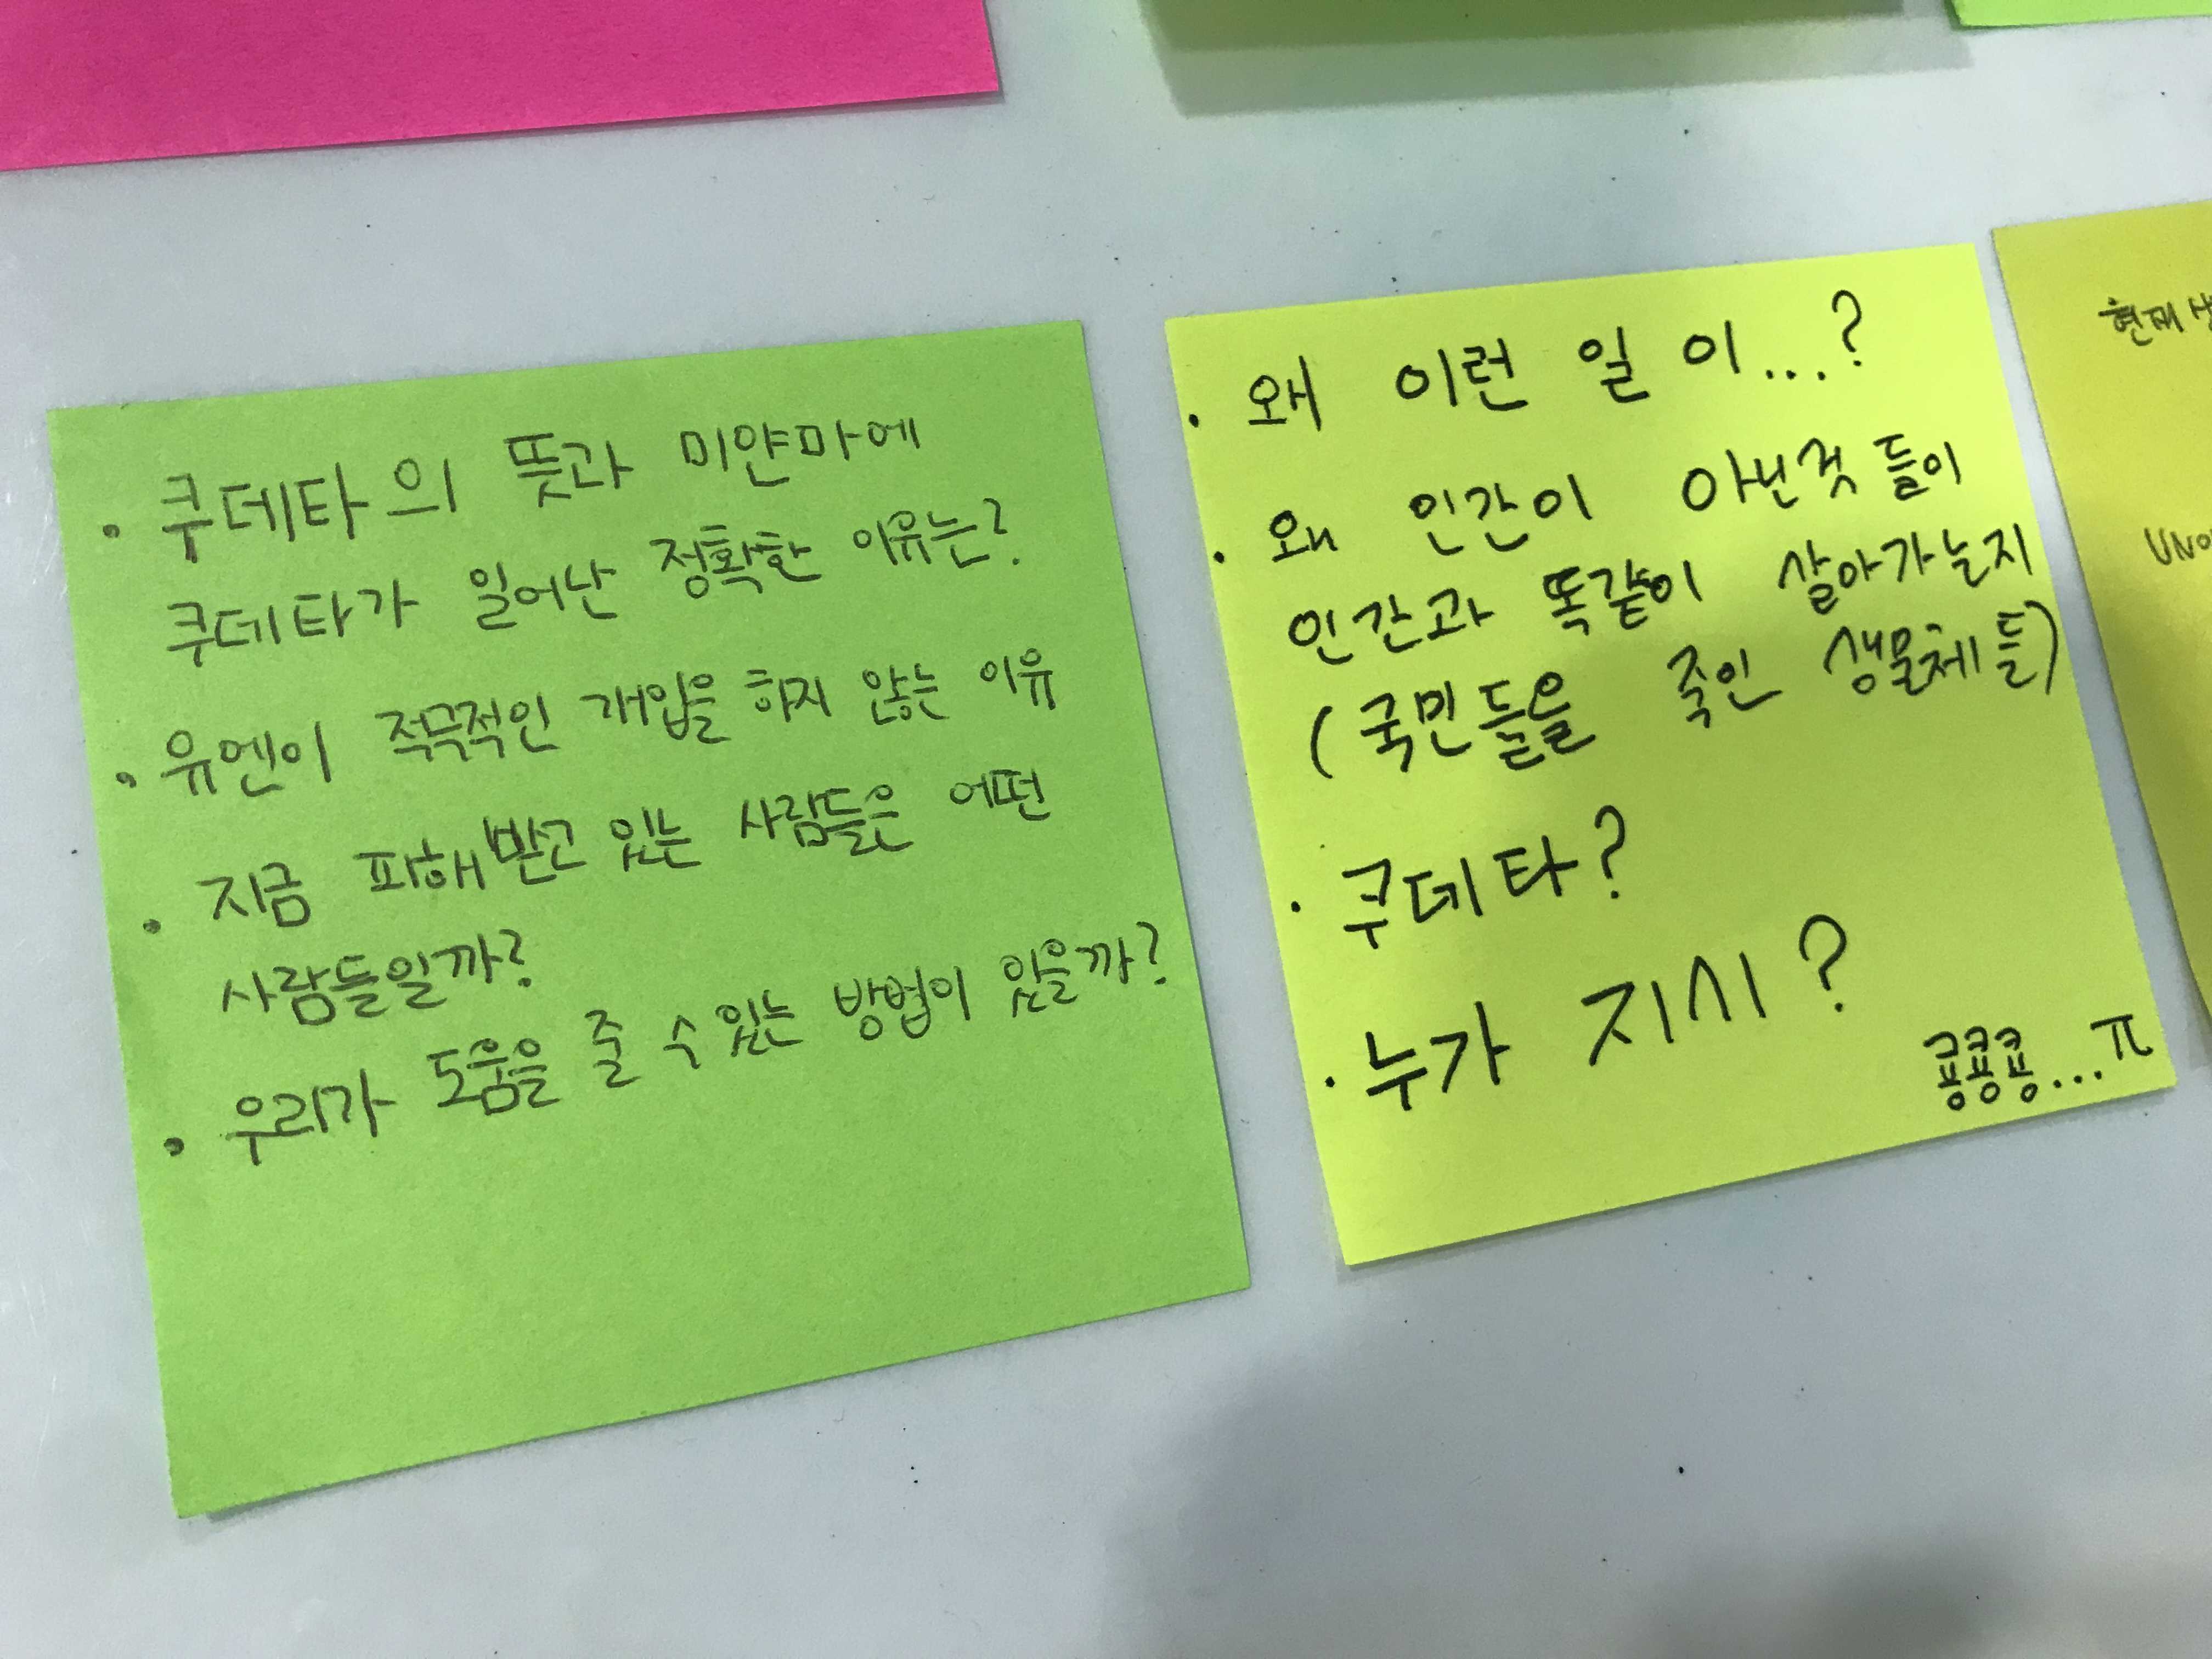 • 쿠데타의 뜻과 미얀마에
쿠데타가 일어난 정확한 이유는?
• 유엔이 적극적인 개입을 하지 않는 이유
• 지금 피해받고 있는 사람들은 어떤
사람들일까?
• 우리가 도움을 줄 수 있는 방법이 있을까?
• 왜 이런 일이...?
• 왜 인간이 아닌것들이
인간과 똑같이 살아가는지
(국민들을 죽인 생물체들)
• 쿠데타?
• 누가 지시?
콩콩콩...π
현재
UN